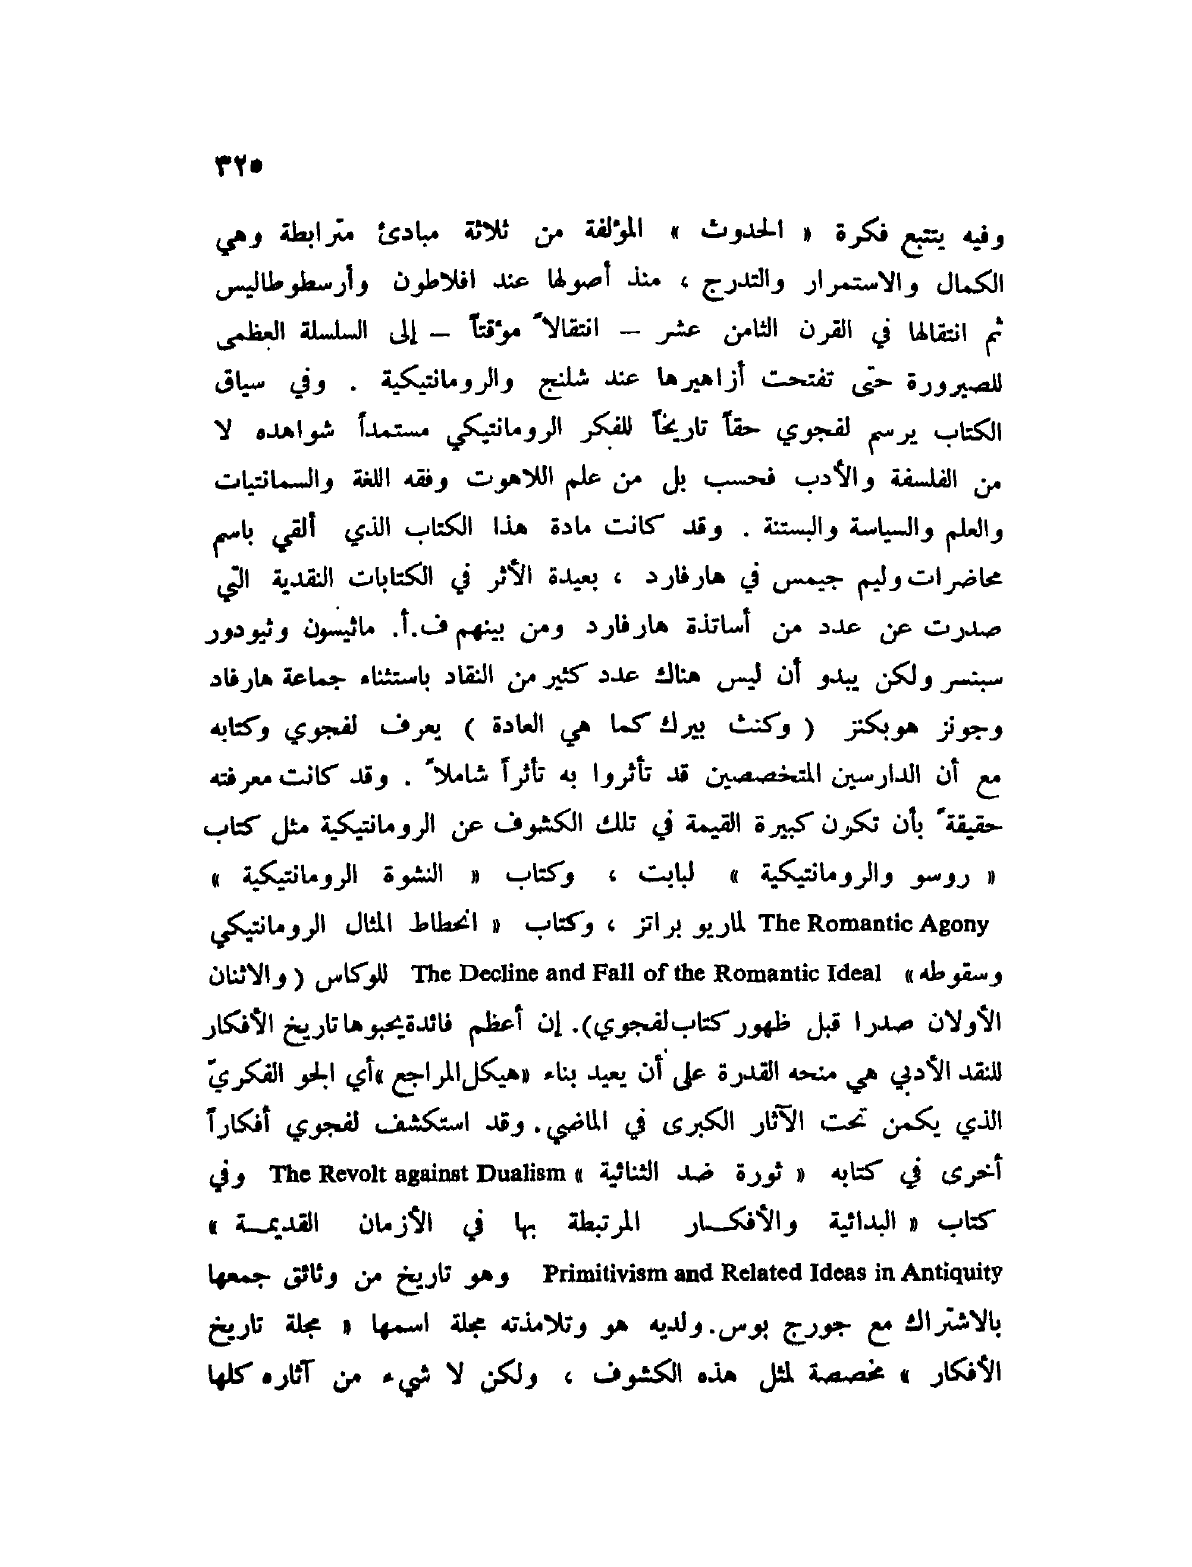 ٣٢٥
وفيه يتتبع فكرة « الحدوث » المؤلفة من ثلاثة مبادئ مترابطة وهي
الكمال والاستمرار والتدرج ، منذ أصولها عند افلاطون وأرسطوطاليس
ثم انتقالها في القرن الثامن عشر – انتقالاً مؤقتاً – إلى السلسلة العظمى
للصيرورة حتى تفتحت أزاهيرها عند شلنج والرومانتيكية . وفي سياق
الكتاب يرسم لفجوي حقاً تاريخاً للفكر الرومانتيكي مستمداً شواهده لا
من الفلسفة والأدب فحسب بل من علم اللاهوت وفقه اللغة والسمانتيات
والعلم والسياسة والبستنة . وقد كانت مادة هذا الكتاب الذي ألقي باسم
محاضرات وليم جيمس في هارفارد ، بعيدة الأثر في الكتابات النقدية التي
صدرت عن عدد من أساتذة هارفارد ومن بينهم ف.أ. ماثيسون وثيودور
سبنسر ولكن يبدو أن ليس هناك عدد كثير من النقاد باستثناء جماعة هارفاد
وجونز هوبكنز ( وكنث بيرك كما هي العادة ) يعرف لفجوي وكتابه
مع أن الدارسين المتخصصين قد تأثروا به تأثراً شاملاً . وقد كانت معرفته
حقيقةً بأن تكون كبيرة القيمة في تلك الكشوف عن الرومانتيكية مثل كتاب
« روسو والرومانتيكية » لبابت ، وكتاب « النشوة الرومانتيكية »
The Romantic Agony لماريو براتز ، وكتاب « انحطاط المثال الرومانتيكي
وسقوطه » The Decline and Fall of the Romantic Ideal للوكاس ( والاثنان
الأولان صدرا قبل ظهور كتاب لفجوي). إن أعظم فائدة يحبوها تاريخ الأفكار
للنقد الأدبي هي منحه القدرة على أن يعيد بناء «هيكل المراجع »أي الجو الفكريّ
الذي يكمن تحت الآثار الكبرى في الماضي. وقد استكشف لفجوي أفكاراً
أخرى في كتابه « ثورة ضد الثنائية » The Revolt against Dualism وفي
كتاب « البدائية والأفكـــار المرتبطة بها في الأزمان القديمـــة »
Primitivism and Related Ideas in Antiquity وهو تاريخ من وثائق جمعها
بالاشتراك مع جورج بوس. ولديه هو وتلامذته مجلة اسمها « مجلة تاريخ
الأفكار » مخصصة لمثل هذه الكشوف ، ولكن لا شيء من آثاره كلها